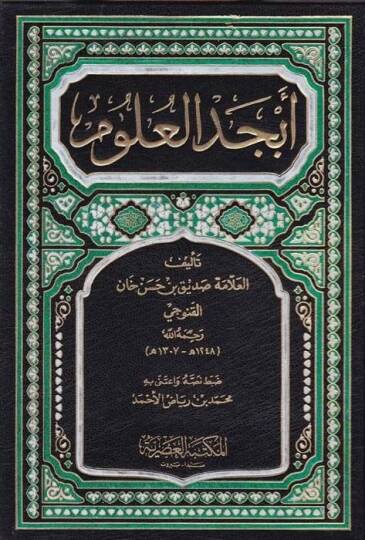 أبجد العلوم
تأليف
العلامة صديق بن حسن خان
القنوجي
رحمه الله
(١٢٤٨هـ - ١٣٠٧هـ)
ضبط نصه واعتنى به
محمد بن رياض الأحمد
المكتبة العصرية
صيدا - بيروت